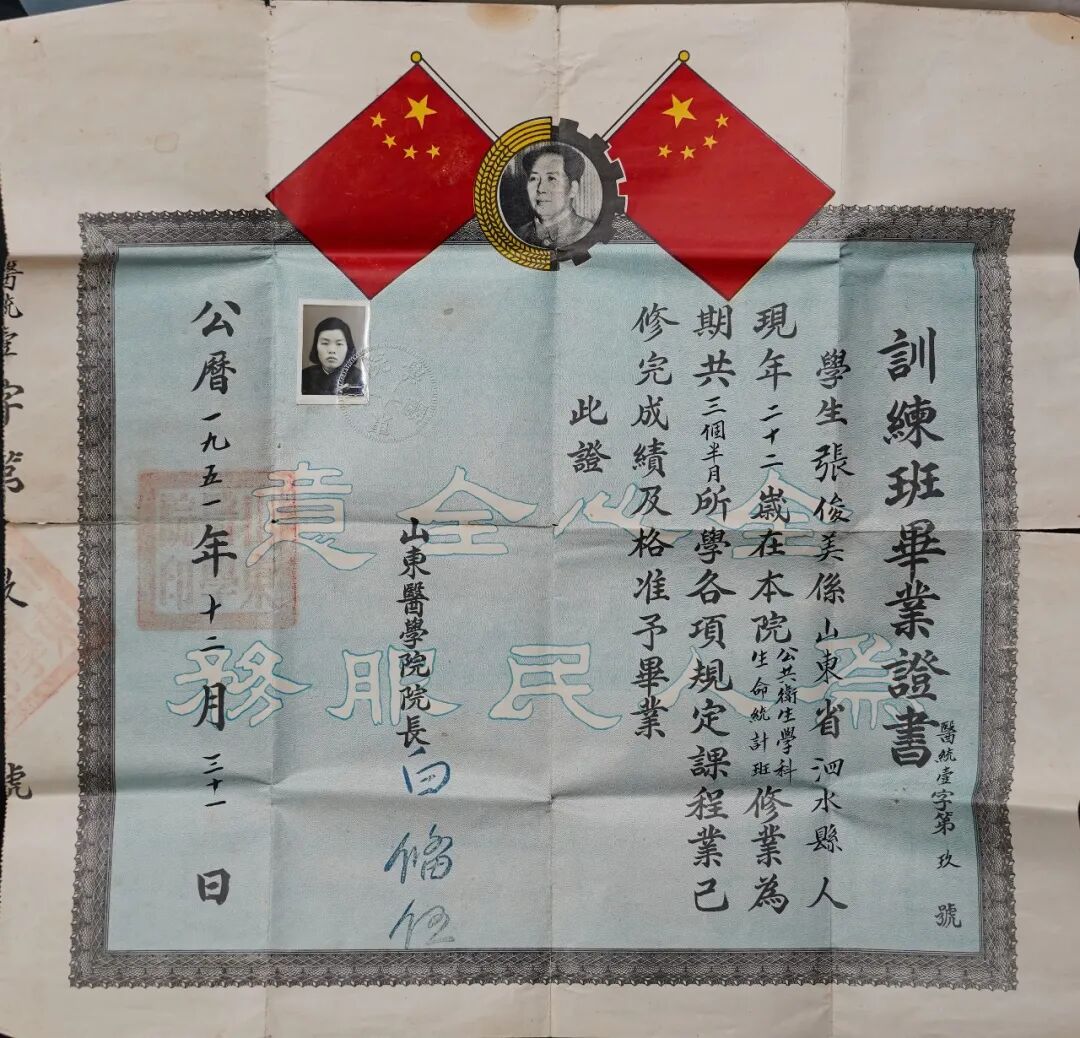 訓練班畢業證書
醫統壹字第玖號
學生張俊美係山東省泗水縣人
現年二十二歲在本院公共衛生學科生命統計班修業為
期共三個半月所學各項規定課程業已
修完成績及格准予畢業
此證
山東醫學院院長白俻伍
公曆一九五一年十二月三十一日
全心全意
為人民服務
醫統壹字第玖號